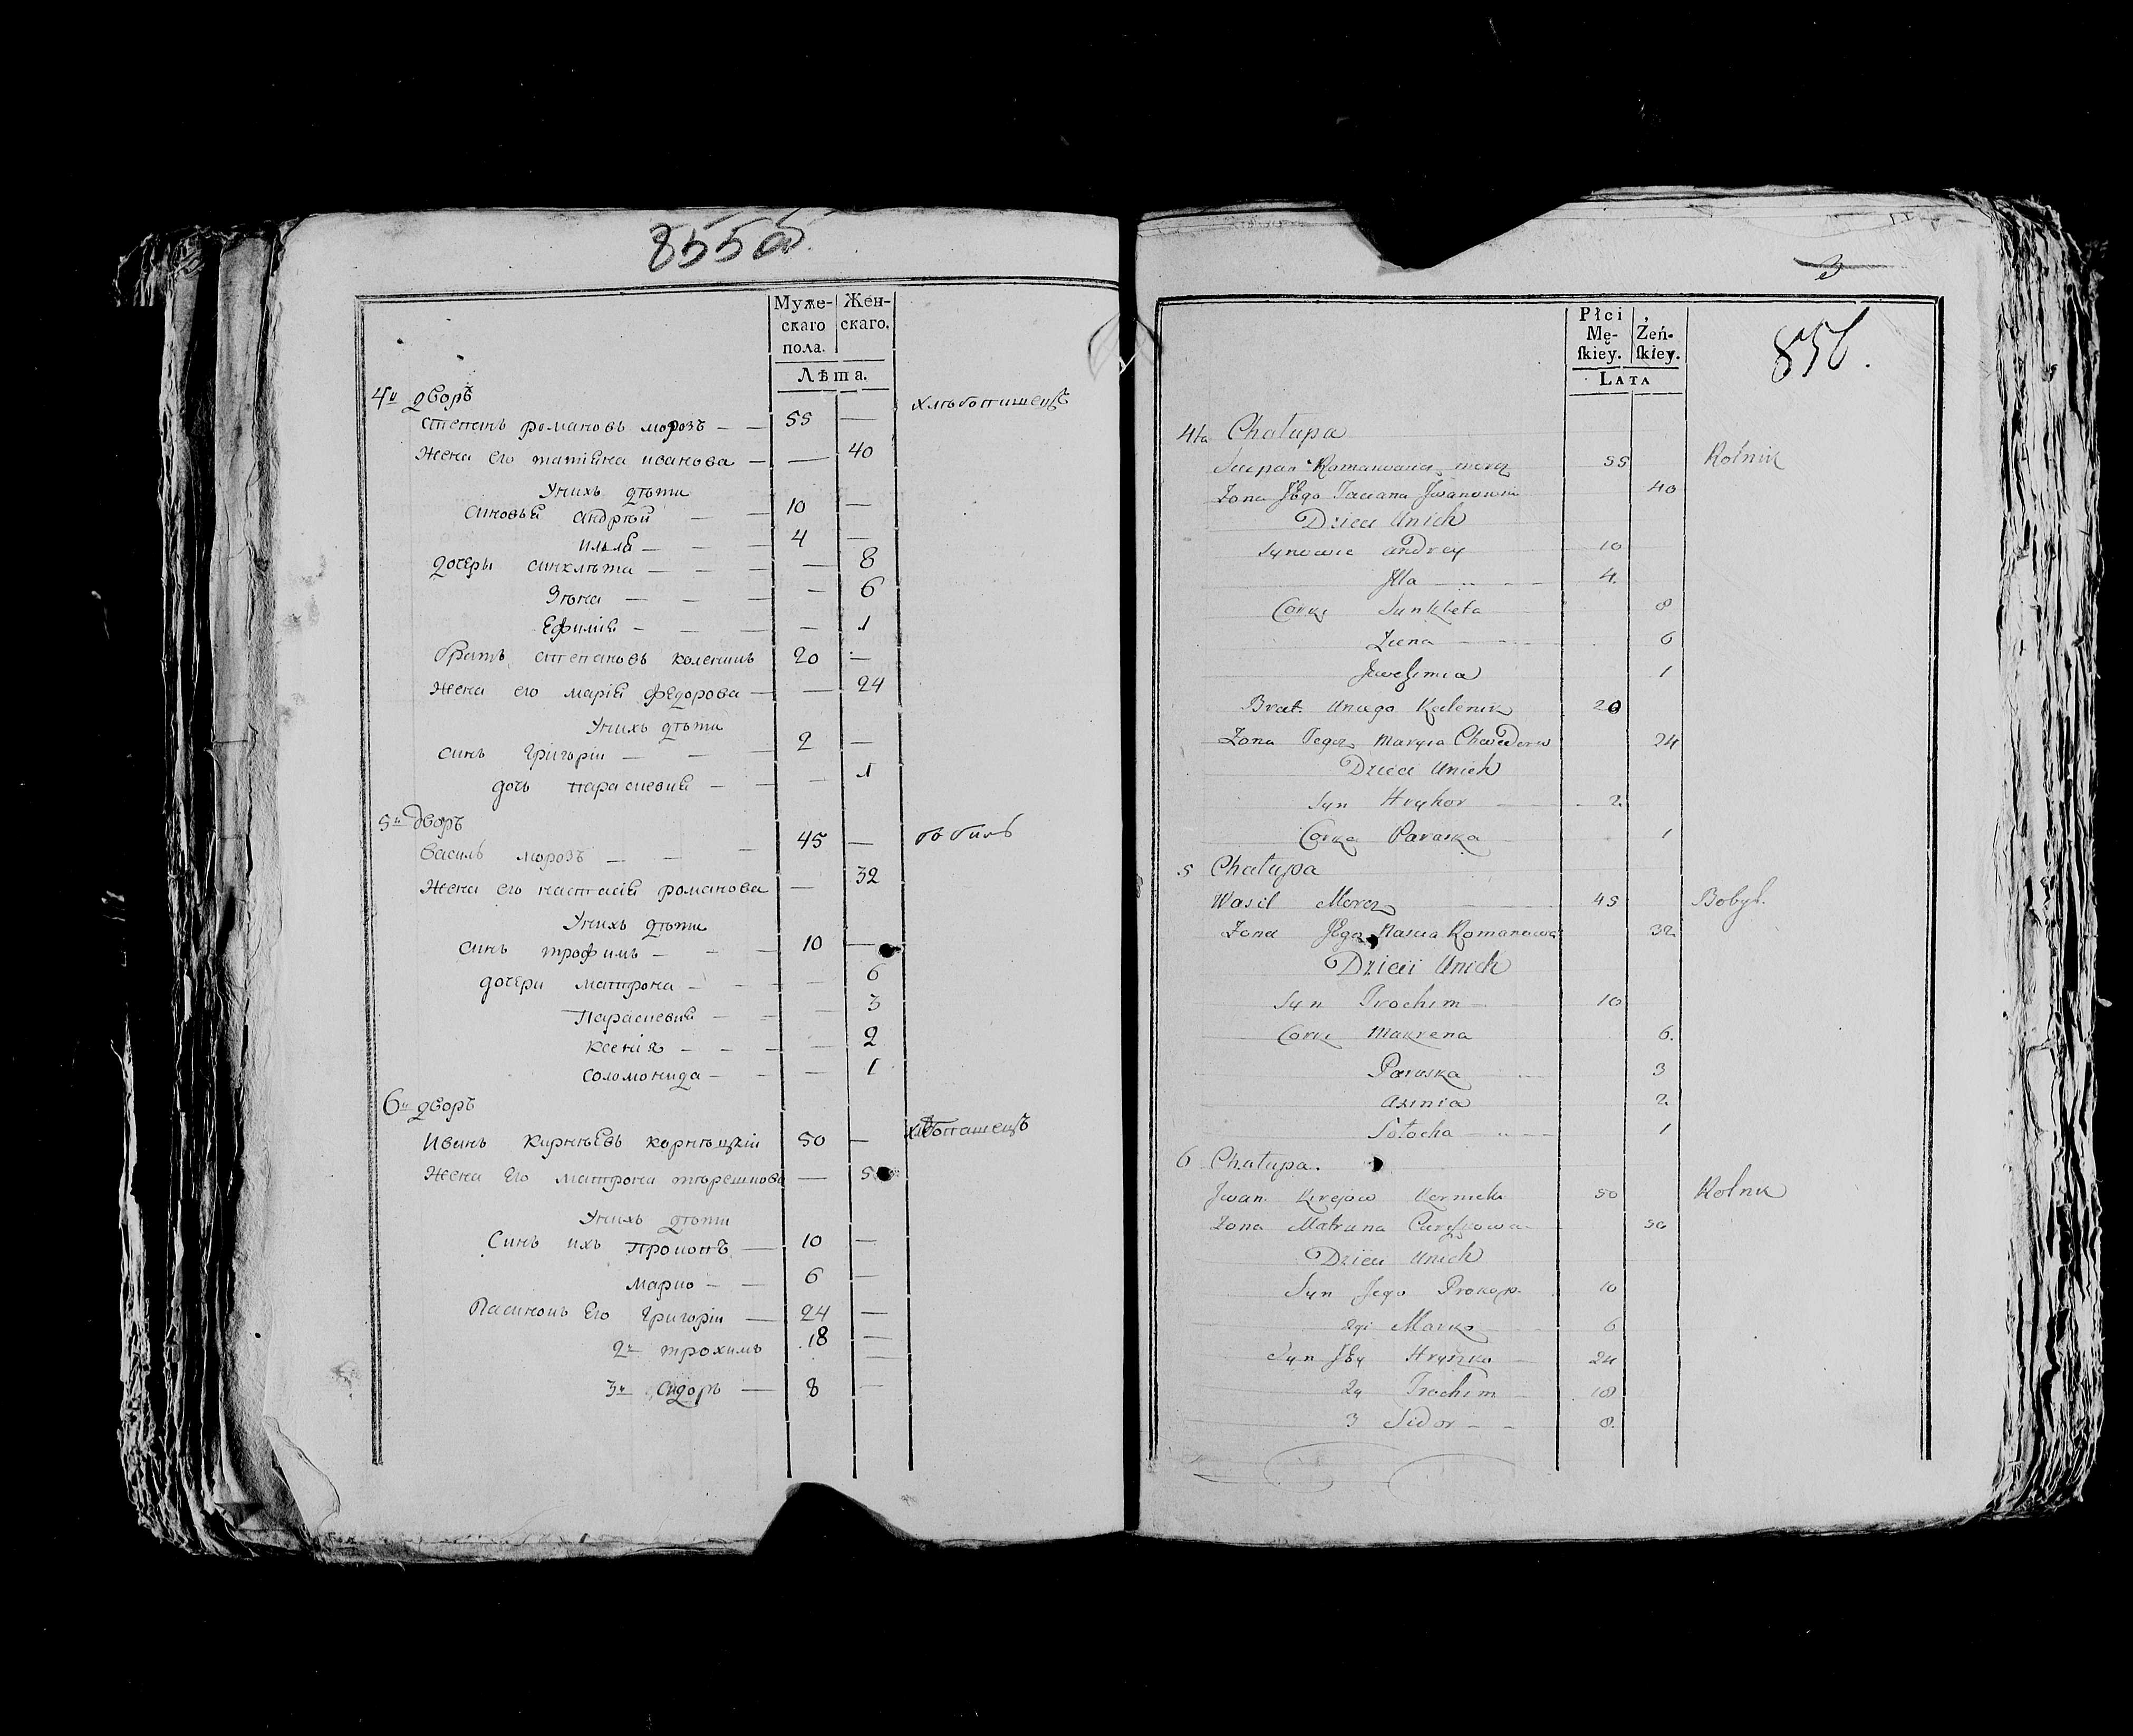 855об.
Муже- Жен-
скаго скаго.
пола.
Лѣта.
4й дворъ
хлѣбопашецъ
степанъ романовъ морозъ — — 55 —
Жена его татіяна иванова — — 40
Унихъ дѣти
синовья андрѣй — — 10 —
илья — — — 4 —
дочеры синклѣта — — — — 8
Зѣна — — — — 6
Ефимія — — — — 1
братъ степановъ каленикъ 20 —
Жена его марія федорова — — 24
Унихъ дѣти
синъ григоріи — — — 2 —
дочь параскевия — — — 1
5й дворъ
василь морозъ — — — 45 — бобиль
Жена его настасія романова — 32
Унихъ дѣти
синъ трофимъ — — — 10 —
дочери матрона — — — — 6
Параскевия — — — 3
Ксенія — — — — 2
соломонида — — — 1
6й дворъ
Иванъ кирѣевъ корнѣцкій 50 — хлѣбопашецъ
Жена Его матрона терешкова — 5
Унихъ дѣти
Синъ ихъ Прокопъ — 10 —
марко — — 6 —
Пасинокъ Его Григоріи — 24 —
2й трохимъ 18 —
3й сидоръ — 8 —
3
Płci
Mę- Żeń-
ſkiey. ſkiey.
LATA
856.
4ta Chałupa
Scepan Romanowicz moroz 55 Rolnik
Zona JEgo Taciana Jwanowna 40
Dzieci Unich
Synowie andrey 10
Jlla 4.
Corki Sunkleta 8
Zena 6
Jwefimia 1
Brat Unego Kalenik 20
Zona Jego Maryia Chwedorow 24
Dzieci Unich
Syn Hryhor 2.
Corka Paraska 1
5 Chałupa
Wasil Moroz 45 Bobyl.
Zona JEgo Nascia Romanowa 32
Dzieci Unich
Syn Trochim 10
Corki Makrena 6.
Paraska 3
axinia 2
Sołocha 1
6 Chałupa.
Jwan Kirejow Kornicki 50 Rolnik
Zona Matruna Cereszkowa 50
Dzieci Unich
Syn Jego Prokop. 10
2gi Marko 6
Syn JEy Hryszko 24
2y Trochim 18
3 Sidor 8.